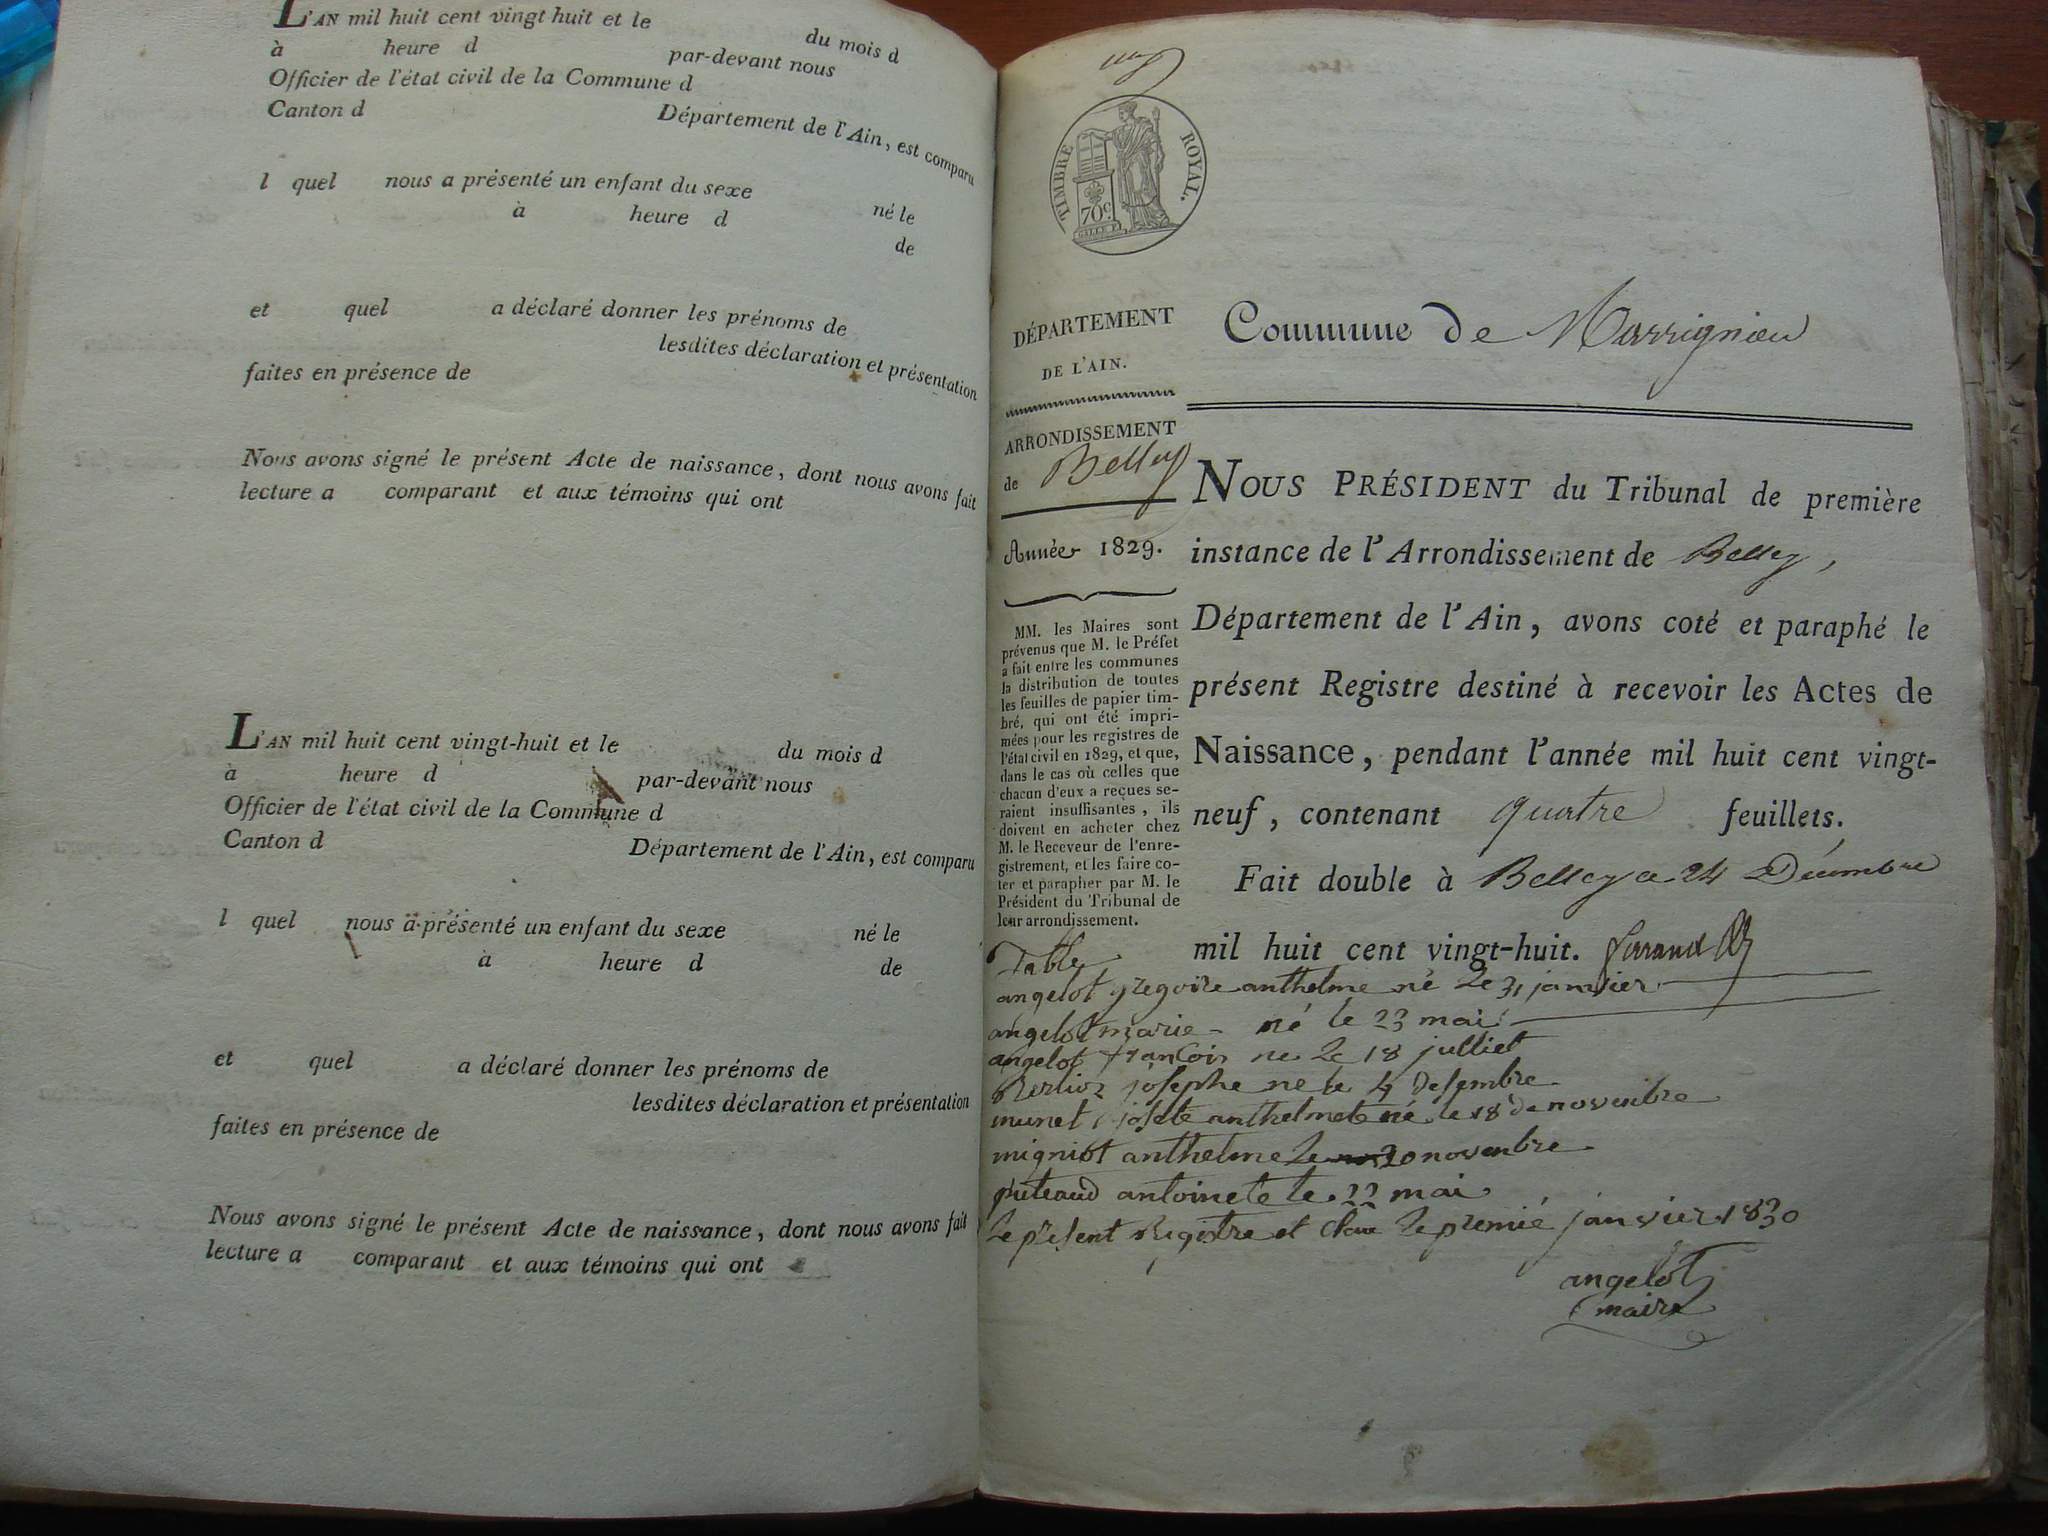 L'AN mil huit cent vingt huit et le du mois d
à heure d par-devant nous
Officier de l'état civil de la Commune d
Canton d Département de l'Ain, est comparu
l quel nous a présenté un enfant du sexe né le
à heure d de
et quel a déclaré donner les prénoms de
lesdites déclaration et présentation
faites en présence de
Nous avons signé le présent Acte de naissance, dont nous avons fait
lecture a comparant et aux témoins qui ont
L'AN mil huit cent vingt-huit et le du mois d
à heure d par-devant nous
Officier de l'état civil de la Commune d
Canton d Département de l'Ain, est comparu
l quel nous a présenté un enfant du sexe né le
à heure d de
et quel a déclaré donner les prénoms de
lesdites déclaration et présentation
faites en présence de
Nous avons signé le présent Acte de naissance, dont nous avons fait
lecture a comparant et aux témoins qui ont
TIMBRE ROYAL.
70c
DÉPARTEMENT
DE L'AIN.
ARRONDISSEMENT
de Belley
Année 1829.
MM. les Maires sont
prévenus que M. le Préfet
a fait entre les communes
la distribution de toutes
les feuilles de papier tim-
bré, qui ont été impri-
mées pour les registres de
l'état civil en 1829, et que,
dans le cas où celles que
chacun d'eux a reçues se-
raient insuffisantes, ils
doivent en acheter chez
M. le Receveur de l'enre-
gistrement, et les faire co-
ter et parapher par M. le
Président du Tribunal de
leur arrondissement.
Commune de Marrignieu
NOUS PRÉSIDENT du Tribunal de première
instance de l'Arrondissement de Belley,
Département de l'Ain, avons coté et paraphé le
présent Registre destiné à recevoir les Actes de
Naissance, pendant l'année mil huit cent vingt-
neuf, contenant quatre feuillets.
Fait double à Belley ce 24 Décembre
mil huit cent vingt-huit.
Table
angelot gregoire anthelme né le 31 janvier
angelot marie - né le 23 mai
angelot françois ne le 18 julliet
Berlioz josephe ne le 4 desembre
munet josete anthelmete né le 18 de novembre
migniot anthelme le 20 novembre
puteaud antoinete le 22 mai
le present Registre et clau le premié janvier 1830
angelot
maire